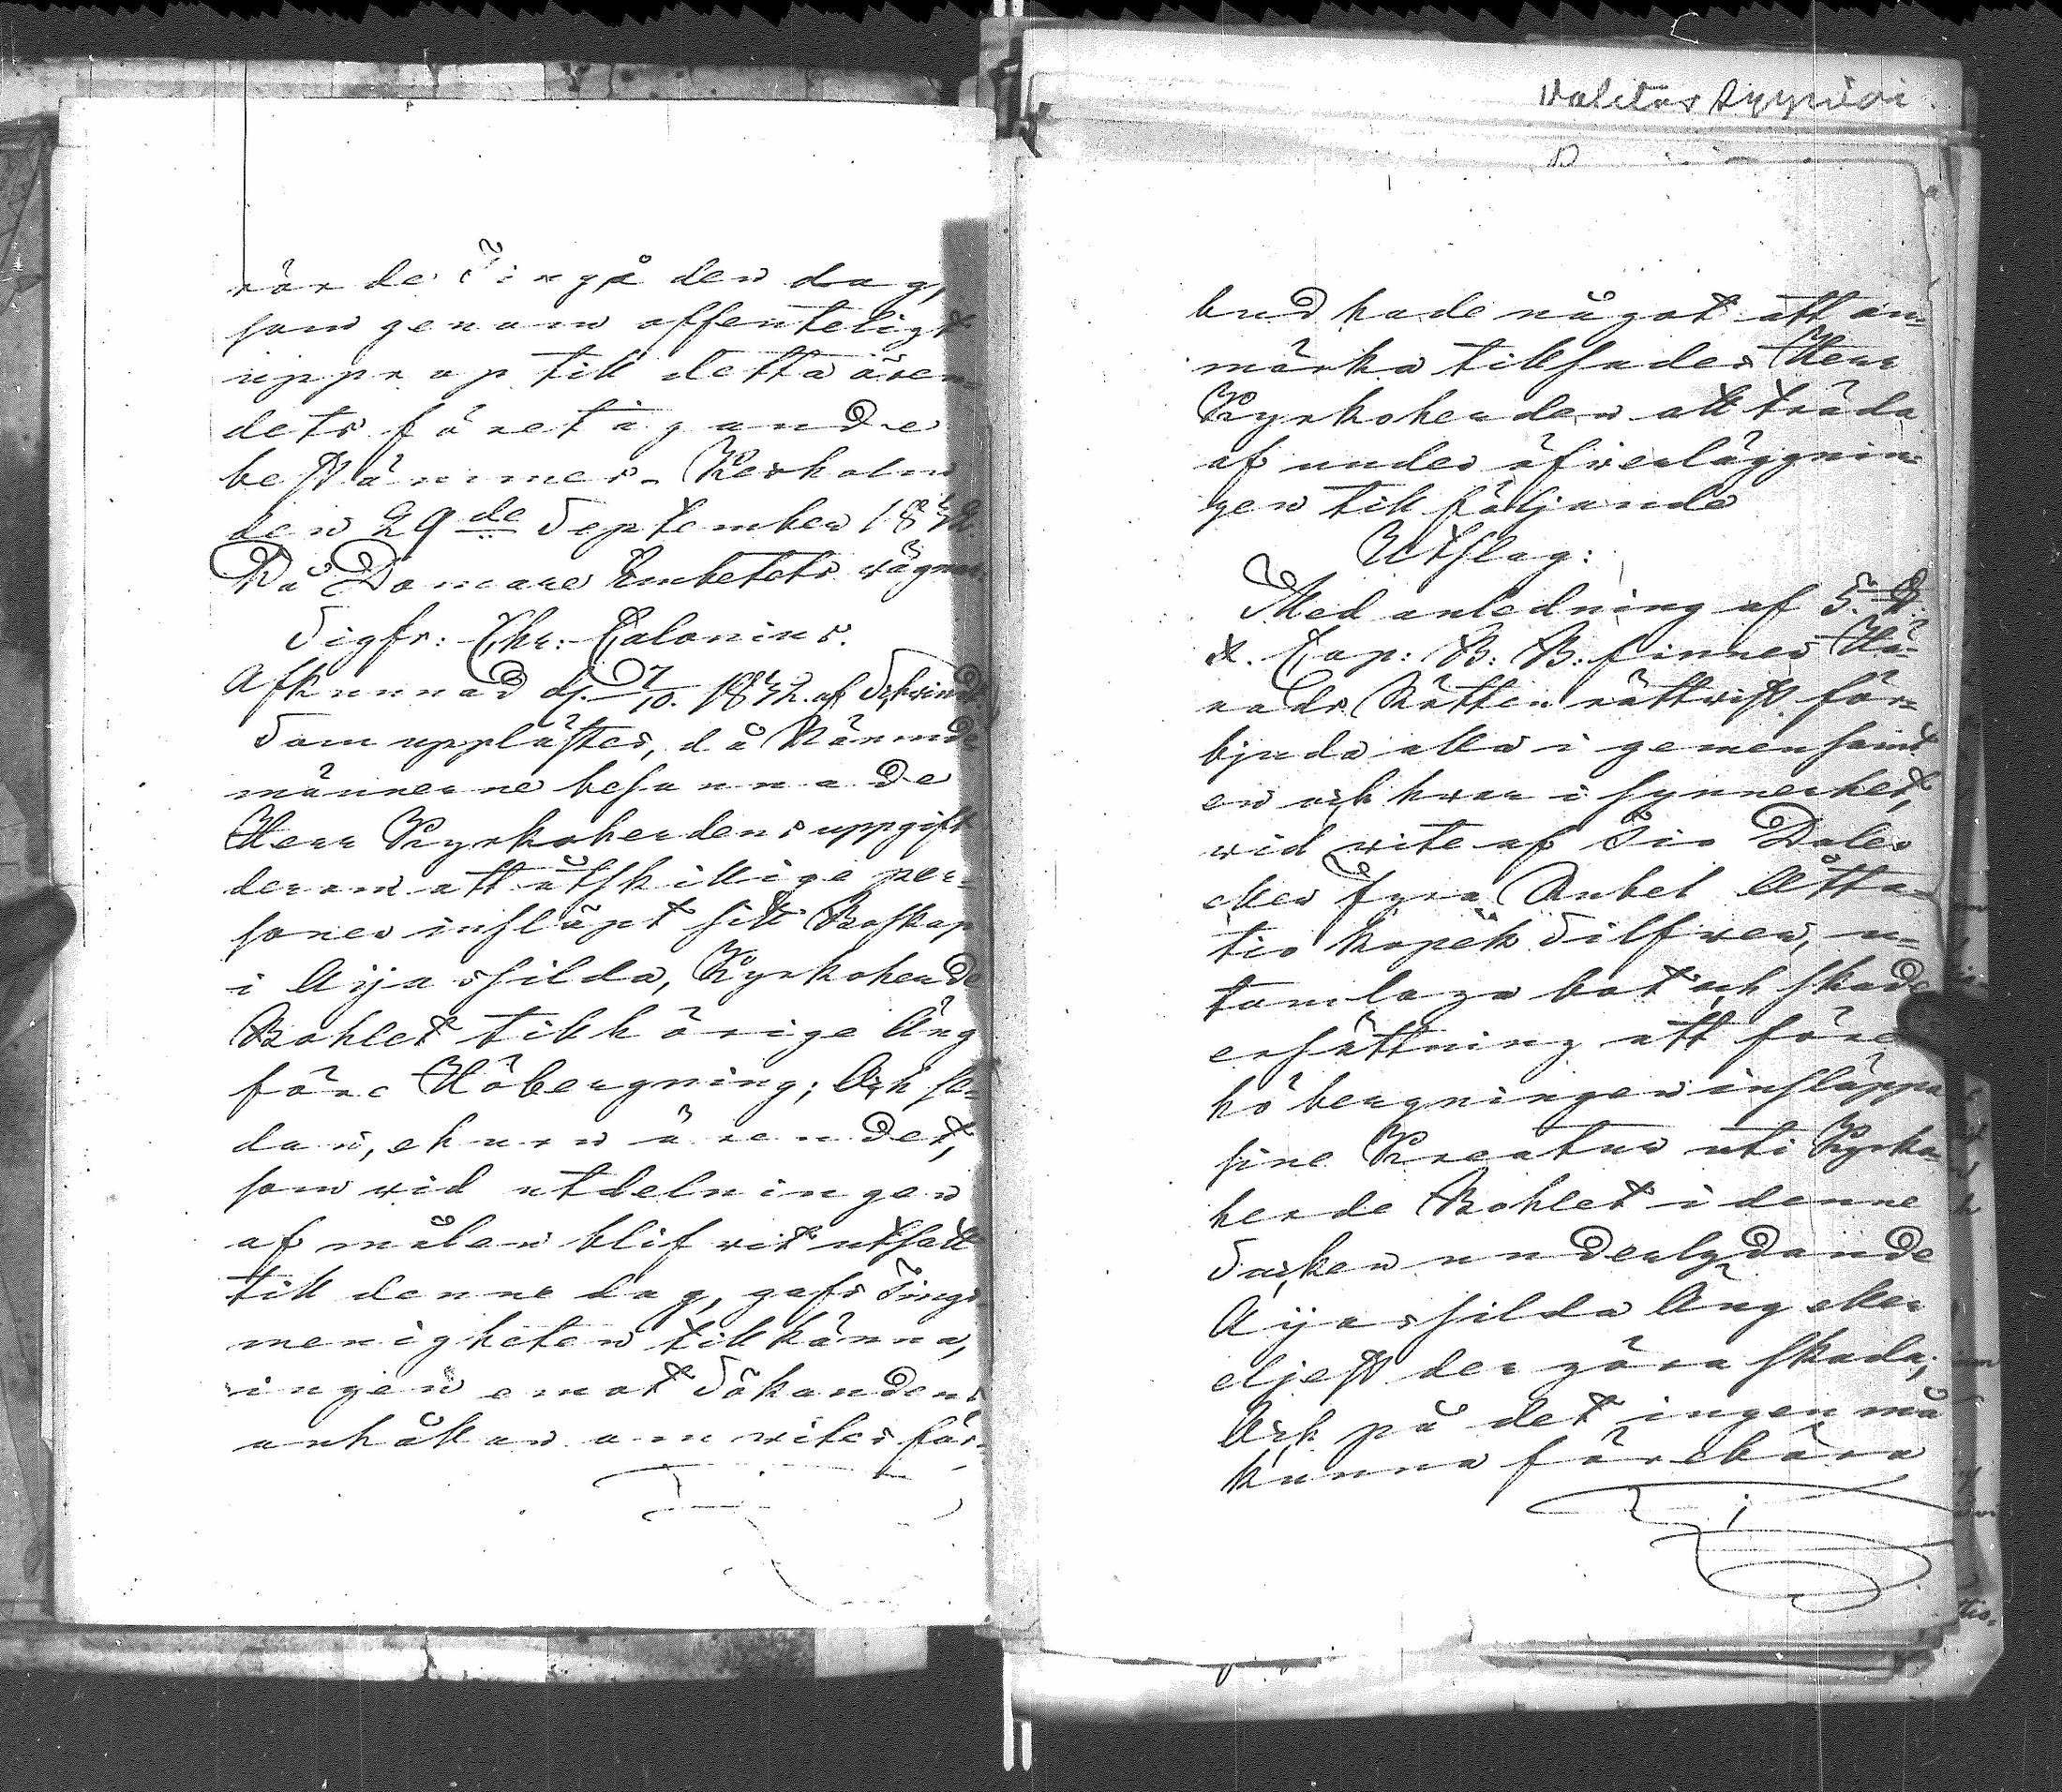 rörde Tinga den dag,
som genom offenteligt
upprop till detta ären-
dets företagande
bestämmes. Kexholm
den 29de September 1842.
På Domare Embetets vägnar
Sigfr: Chr: Calonius.
Afkunnad d. 7/10. 1842. af
Som upplästes, då Nämnde
männerne besannade
Herr Kyrkoherdens uppgift
derom att åtskillige per-
soner insläpt sitt Boskap
i Ayassilda, Kyrkoherde
Bohlet tillhörige Äng
före Höbergning; Och se-
dan, ehuru ärendet,
som wid utdelningen
af målen blifwit utsatt
till denne dag, gafs Tings
menigheten tillkänna,
ingen emot Sökandens
anhållan om wites för-
Valitus Syynioi
bud hade något att an-
märka tillsades Herr
Kyrkoherden att träda
af under öfwerläggnin-
gen till följande
Utslag:
Med anledning af 5. §.
X. Cap: B: B: finner Hä-
rads Rätten rättwist för-
bjuda alla i gemen samt
en och hwar i synnerhet,
wid wite af Tio Daler
eller Fyra Rubel Åtta-
tio Kopek Silfwer, u-
tom laga bot och skade
ersättning att före
höbergningen insläppa
sine Kreatur uti Kyrko-
herde Bohlet i denne
Socken underlydande
Ayassilda Äng eller
eljest der göra skada;
Och på det ingen må
kunna förebära